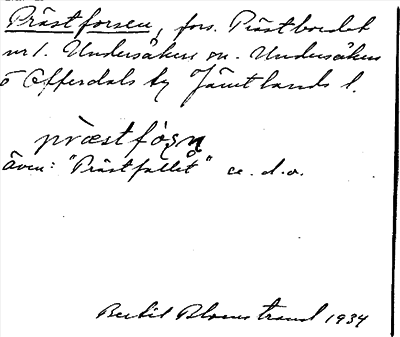 Prästforsen, fors. Prästbordet
nr 1. Undersåkers sn. Undersåkers
o Offerdals tg Jämtlands l.
præstfòșn̥
även: "Prästfallet" ce. d. o.
Bertil Blomstrand 1934